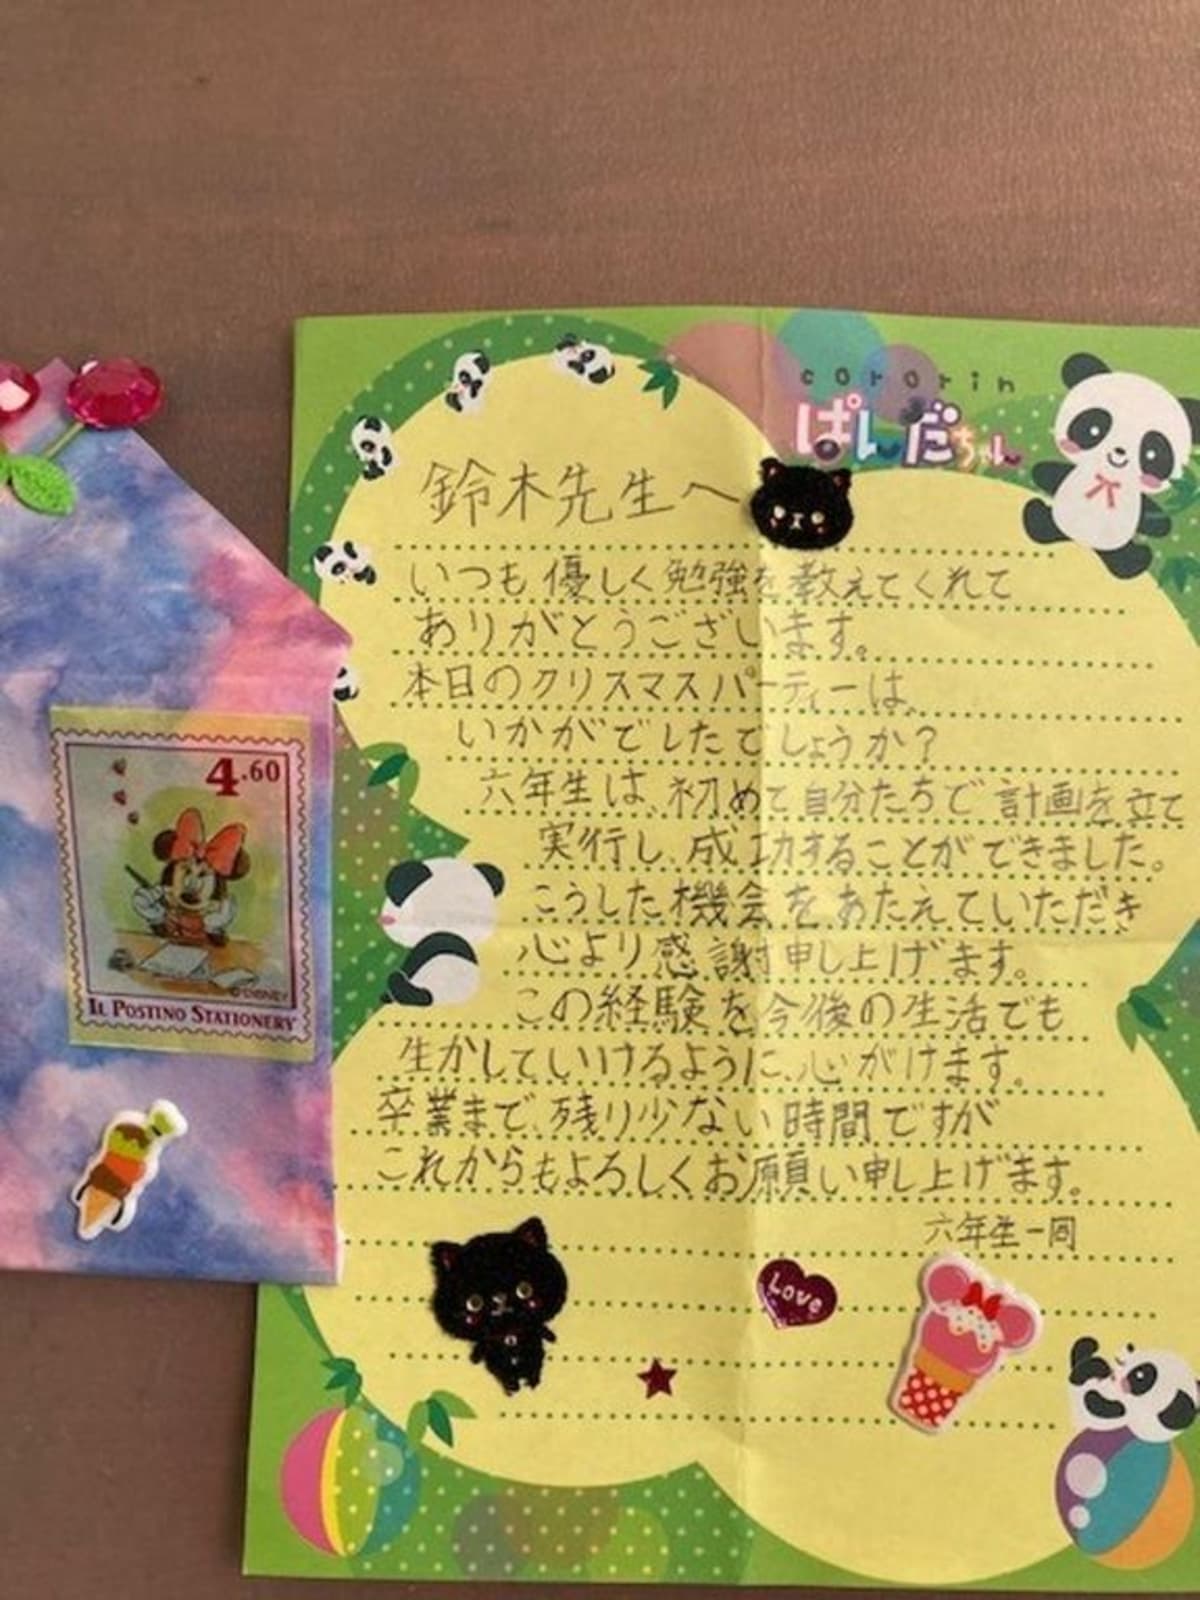 cororin
ぱんだちゃん
鈴木先生へ
いつも優しく勉強を教えてくれて
ありがとうございます。
本日のクリスマスパーティーは、
いかがでしたでしょうか?
六年生は、初めて自分たちで計画を立て
実行し、成功することができました。
こうした機会をあたえていただき
心より感謝申し上げます。
この経験を今後の生活でも
生かしていけるように、心がけます。
卒業まで、残り少ない時間ですが
これからもよろしくお願い申し上げます。
六年生一同
Love
4.60
©DISNEY
IL POSTINO STATIONERY